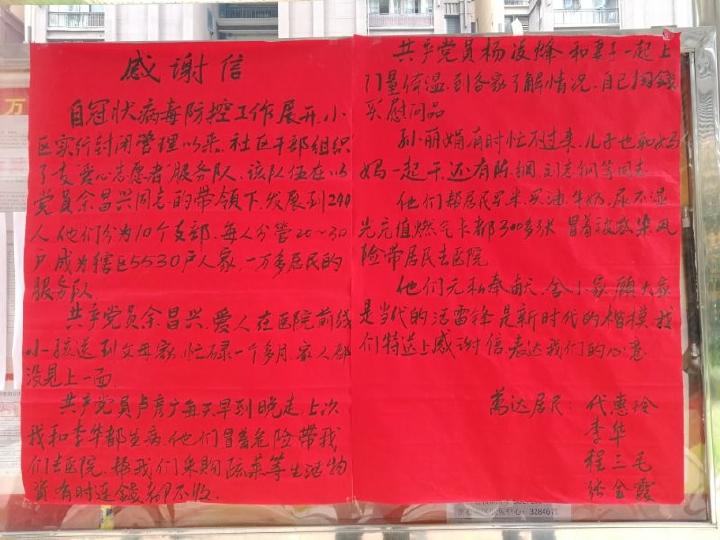 感谢信
自冠状病毒防控工作展开,小
区实行封闭管理以来,社区干部组织
了支"爱心志愿者"服务队,该队伍在以
党员余昌兴同志的带领下,发展到240
人,他们分为10个支部,每人分管20~30
户,成为辖区5530户人家,一万多居民的
服务队.
共产党员余昌兴,爱人在医院前线
小孩送到父母家,忙碌一个多月,家人都
没见上一面.
共产党员卢彦广每天早到晚走,上次
我和李华都生病,他们冒着危险带我
们去医院,帮我们采购蔬菜等生活物
资有时连钱都不收.
共产党员杨凌烽和妻子一起上
门量体温,到各家了解情况,自己
买慰问品
孙丽娟有时忙不过来,儿子也和妈
妈一起干,还有陈钢,刘志钢等同志
他们帮居民买米,买油,牛奶,尿不湿
光充值燃气卡都300多张 冒着被感染风
险带居民去医院
他们无私奉献,舍小家顾大家
是当代的活雷锋,是新时代的楷模,我
们特送上感谢信,表达我们的心意.
万达居民:代惠玲
李华
程三毛
张金霞
3284671